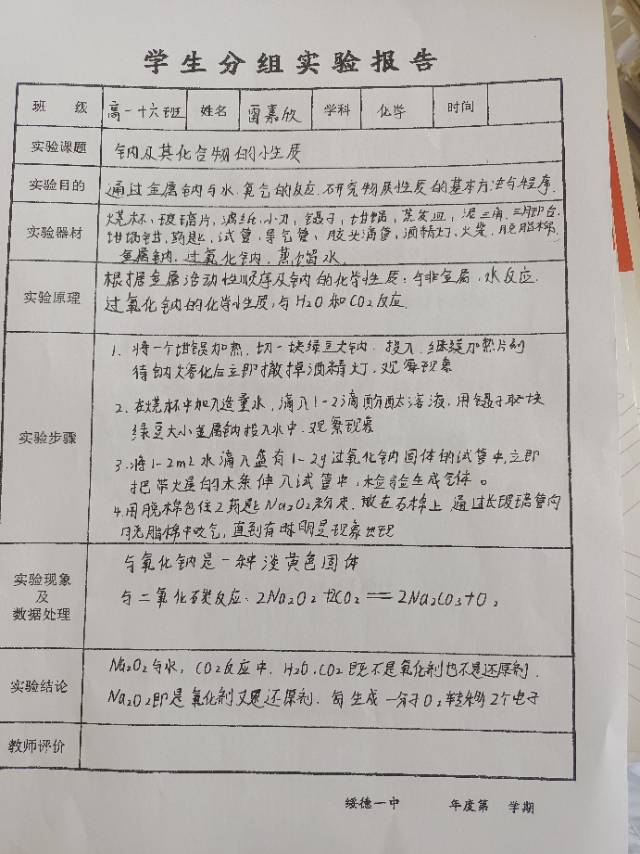 学生分组实验报告
班 级 高一十六班 姓名 雷嘉欣 学科 化学 时间
实验课题 钠及其化合物的性质
实验目的 通过金属钠与水、氧气的反应.研究物质性质的基本方法与程序.
实验器材 烧杯、玻璃片,滤纸,小刀,镊子,坩埚,蒸发皿,泥三角,三脚架台
坩埚钳,药匙,试管,导气管、胶头滴管,酒精灯,火柴,脱脂棉
金属钠,过氧化钠,蒸馏水
实验原理 根据金属活动性顺序及钠的化学性质:与非金属.水反应.
过氧化钠的化学性质,与H2O和CO2反应.
实验步骤
1、将一个坩埚加热.切一块绿豆大钠.投入.继续加热片刻
待钠熔化后立即撤掉酒精灯.观察现象
2.在烧杯中加入适量水,滴入1-2滴酚酞溶液,用镊子取块
绿豆大小金属钠投入水中.观察现象
3.将1-2mL水滴入盛有1-2g过氧化钠固体的试管中,立即
把带火星的木条伸入试管中,检验生成气体。
4.用脱棉包住2药匙Na2O2粉末.放在石棉上 通过长玻璃管向
脱脂棉中吹气,直到有明显现象出现
实验现象
及
数据处理
与氧化钠是一种淡黄色固体
与二氧化碳反应:2Na2O2+2CO2=2Na2CO3+O2
实验结论 Na2O2与水,CO2反应中.H2O、CO2既不是氧化剂也不是还原剂.
Na2O2即是氧化剂又是还原剂.每生成一分子O2转移2个电子
教师评价
绥德一中 年度第 学期